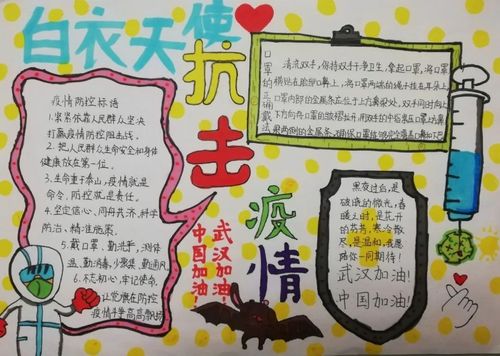 白衣天使
抗击疫情
疫情防控标语
1.紧紧依靠人民群众坚决
打赢疫情防控阻击战。
2.把人民群众生命安全和身体
健康放在第一位。
3.生命重于泰山,疫情就是
命令,防控就是责任。
4.坚定信心、同舟共济、科学
防治、精准施策。
5.戴口罩、勤洗手、测体
温、勤消毒、少聚集、勤通风
6.不忘初心、牢记使命,
让党旗在防控
疫情斗争高高飘扬
口罩的正确戴法
清洗双手,保持双手干净卫生,拿起口罩,将口罩
横贴在脸部口鼻上,将口罩两端的绳子挂在耳朵上
口罩内部的金属条应位于上方鼻梁处,双手同时向上
下方向将口罩的皱褶拉开,用双手的中指
武汉加油!
中国加油!
黑夜过后,是
破晓的微光,春
暖之时,是花开
的芬芳,寒冷散
尽,是温和,我愿
陪你一同期待!
武汉加油!
中国加油!